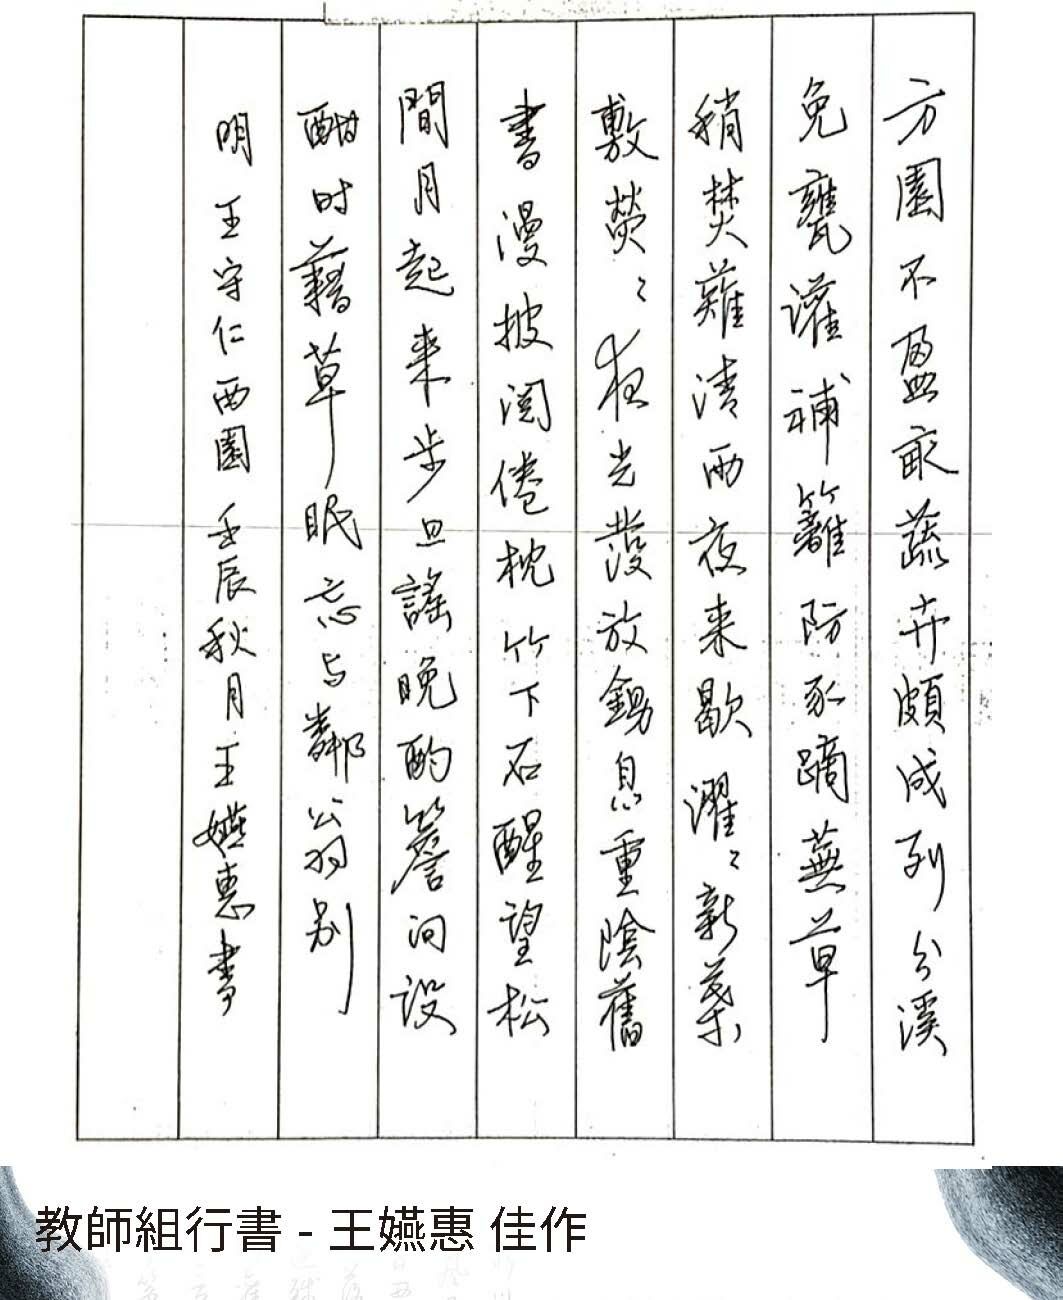 方園不盈畝蔬卉頗成列分溪
免甕灌補籬防豕蹢蕪草
稍焚薙清雨夜来歇濯〻新葉
敷熒〻夜光發放鋤息重陰舊
書漫披閱倦枕竹下石醒望松
間月起来步且謠晚酌簷间設
酣时藉草眠忘与鄰公翁别
明王守仁西園壬辰秋月王嬿惠書
教師組行書 - 王嬿惠 佳作